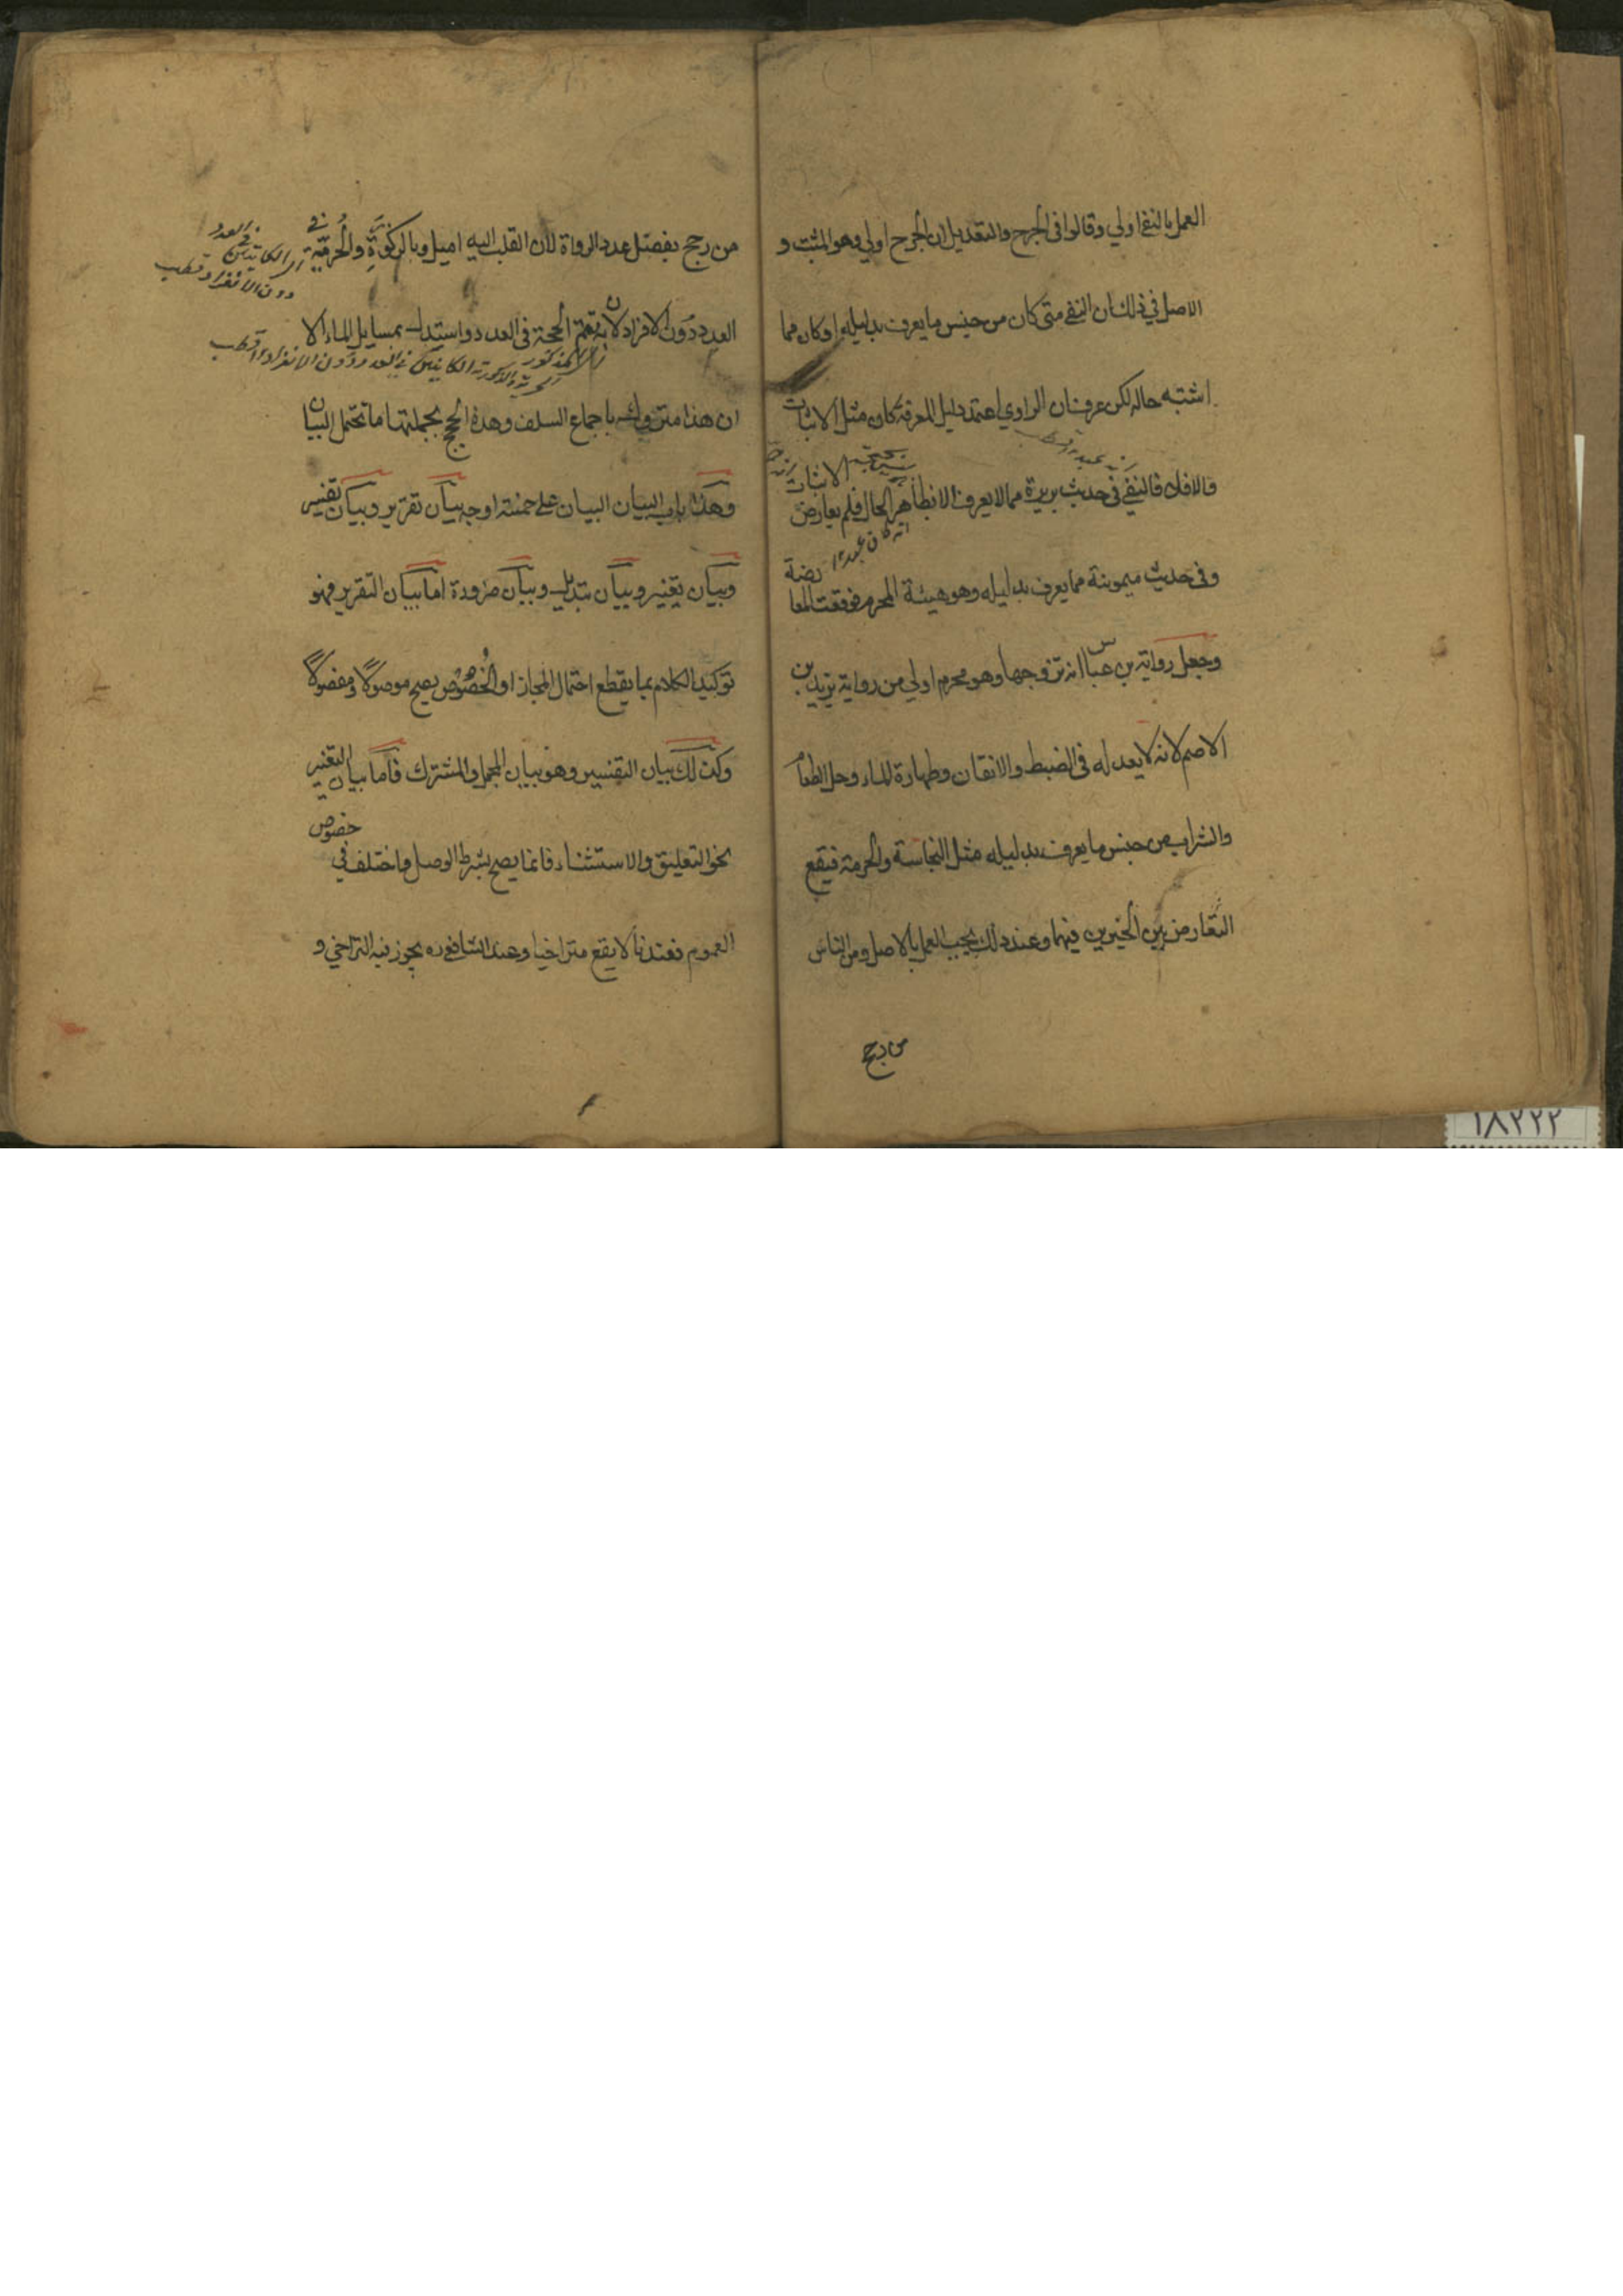 العمل بالنفي اولي وقالوا في الجرح والتعديل ان الجرح اولي وهو المثبت و
الاصل في ذلك ان النفي متى كان من جنس ما يعرف بدليله او كان مما
اشتبه حاله لكن عرف ان الراوي اعتمد دليل المعرفة كان مثل الاثبات
والا فلا فالنفي في حديث بريرة مما لا يعرف الا بظاهر الحال فلم يعارض
الاثبات
وفي حديث ميمونة مما يعرف بدليله وهو هيئة المحرم فوقعت المعا
رضة
وجعل رواية بن عباس انه تزوجها وهو محرم اولي من رواية يزيد بن
الاصم لانه لا يعدله في الضبط والاتقان وطهارة الماء وحل الطعام
والشراب من جنس ما يعرف بدليله مثل النجاسة والحرمة فيقع
التعارض بين الخبرين فيهما وعند ذلك يجب العمل بالاصل ومن الناس
من رجح
من رجح بفضل عدد الرواة لان القلب اليه اميل وبالذكورة والحرية في
العدد دون الافراد لان به تتم الحجة في العدد واستدل بمسايل الماء الا
ان هذا متروك باجماع السلف وهذه الحجج بجملتها ما تحتمل البيان
وهذا باب البيان البيان على خمسة اوجه بيان تقرير وبيان تفسير
وبيان تغيير وبيان تبديل وبيان ضرورة اما بيان التقرير فهو
توكيد الكلام بما يقطع احتمال المجاز او الخصوص يصح موصولا ومفصولا
وكذلك بيان التفسير وهو بيان المجمل والمشترك فاما بيان التغيير
نحو التعليق والاستثناء فانما يصح بشرط الوصل واختلف في
خصوص
العموم فعندنا لا يقع متراخيا وعند الشافعي ره يجوز فيه التراخي و
١٨٢٢٢